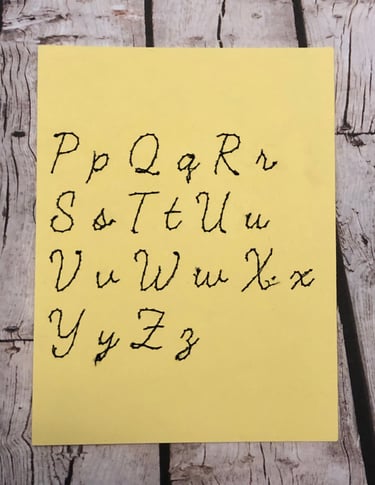 P p Q q R r
S s T t U u
V v W w X x
Y y Z z